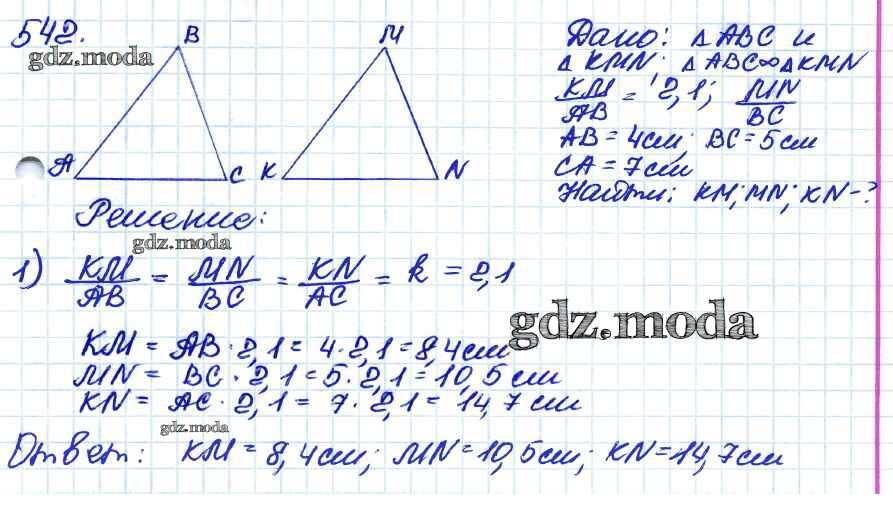 542.
gdz.moda
B
A
C
M
K
N
Дано: △ ABC и
△ KMN; △ ABC∞△KMN
KM/AB = 2,1; MN/BC
AB = 4см; BC = 5см
CA = 7см
Найти: KM; MN; KN-?
Решение:
gdz.moda
1) KM/AB = MN/BC = KN/AC = k = 2,1
gdz.moda
KM = AB · 2,1 = 4 · 2,1 = 8,4см
MN = BC · 2,1 = 5 · 2,1 = 10,5 см
KN = AC · 2,1 = 7 · 2,1 = 14,7 см
gdz.moda
Ответ: KM = 8,4см; MN = 10,5см; KN = 14,7см